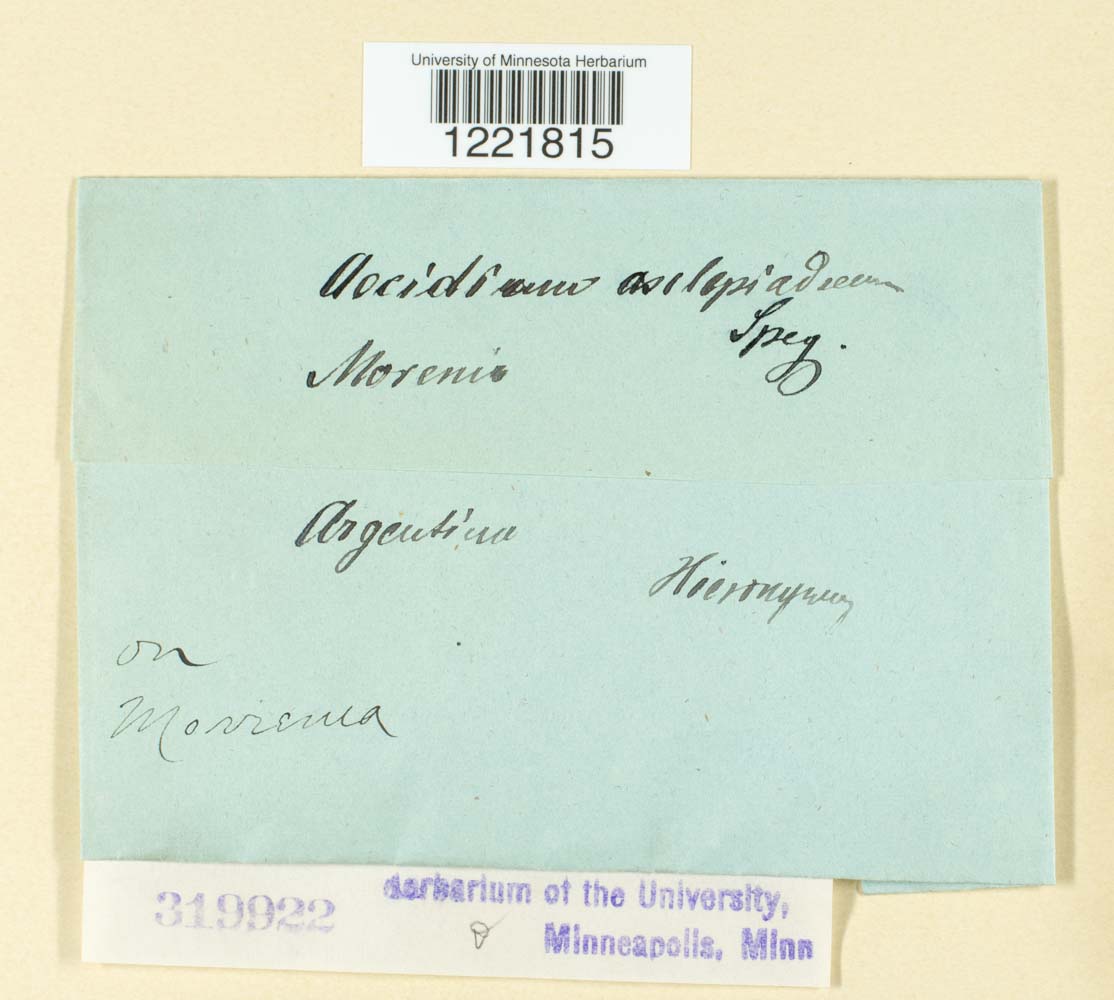 University of Minnesota Herbarium
1221815
Aecidium asclepiadeum
Speg.
Morenia
Argentina
Hieronymus
on
Morrenia
319922
Herbarium of the University,
Minneapolis, Minn